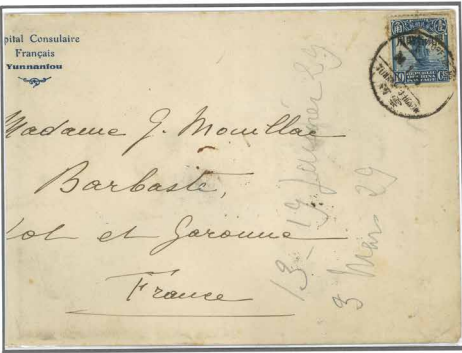 pital Consulaire
Français
Yunnanfou
Madame J. Mouillac
Barbaste,
Lot et Garonne
France
13 - 19 Janvier 29
3 Mars 29